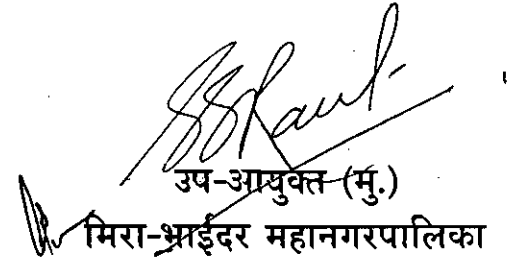 उप-आयुक्त (मु.)
मिरा-भाईंदर महानगरपालिका